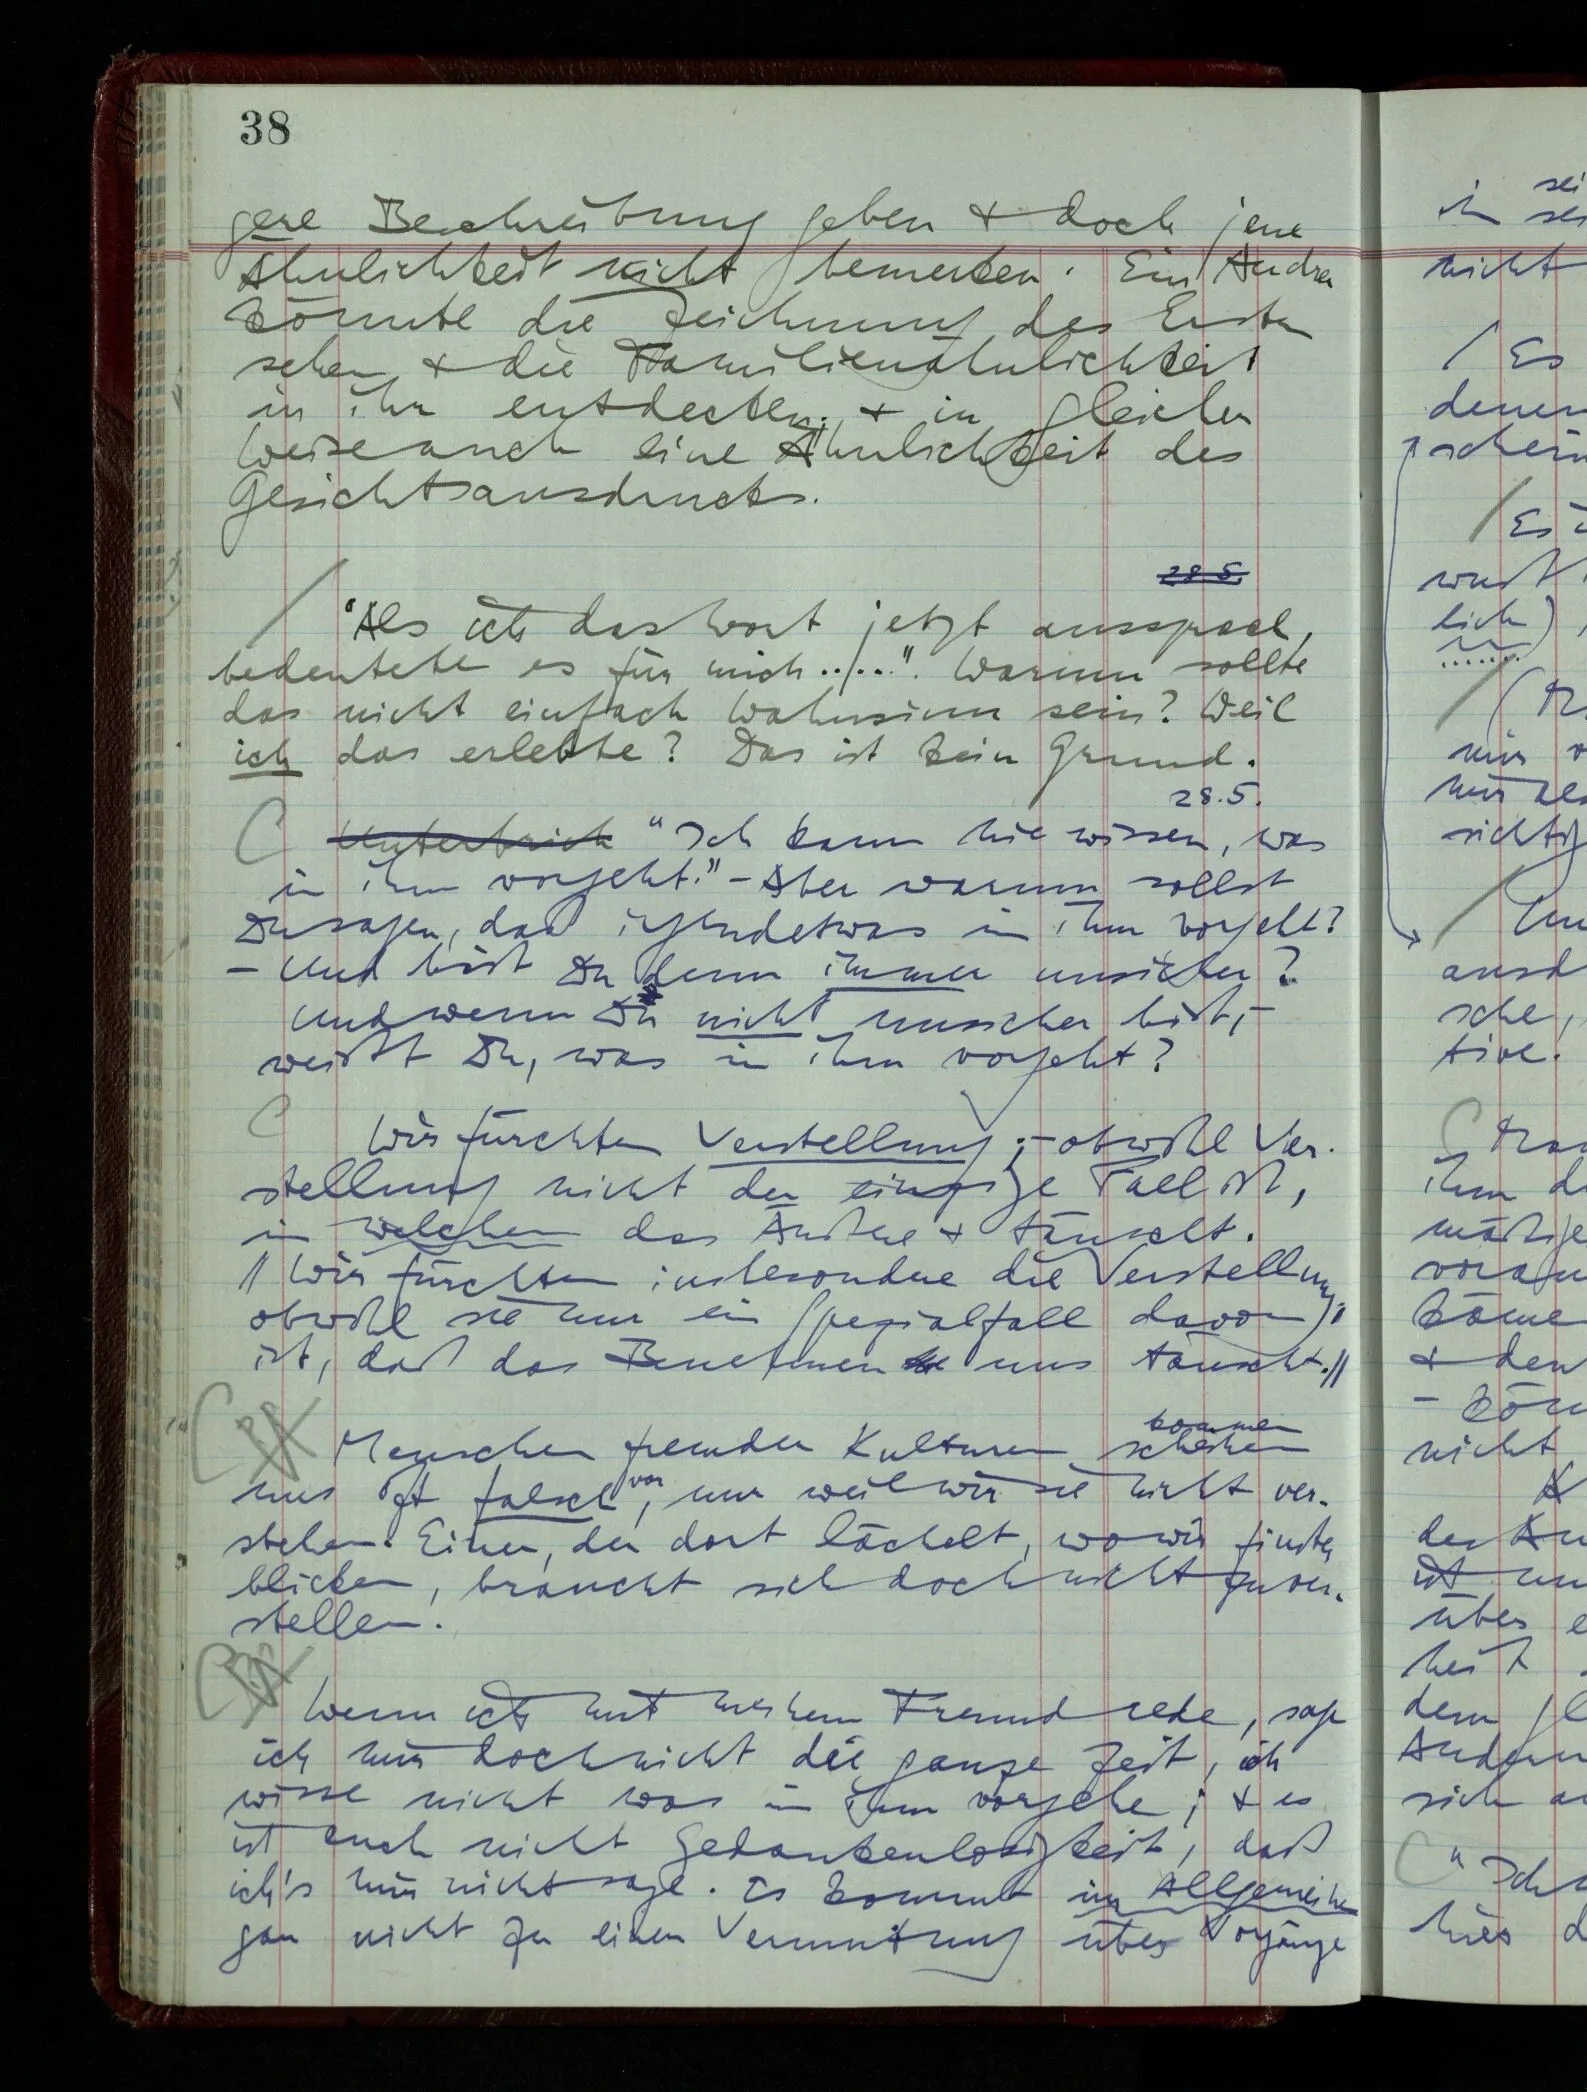 38
gere Beschreibung geben & doch jene
Ähnlichkeit nicht bemerken. Ein Andrer
könnte die Zeichnung des Ersten
sehen & die Familienähnlichkeit
in ihr entdecken; & in gleicher
Weise auch eine Ähnlichkeit des
Gesichtsausdrucks.
28.5.
/ "Als ich das Wort jetzt aussprach,
bedeutete es für mich ....". Warum sollte
das nicht einfach Wahnsinn sein? Weil
ich das erlebte? Das ist kein Grund.
28.5.
Unterbrich "Ich kann nie wissen, was
in ihm vorgeht." – Aber warum sollst
Du sagen, daß irgendetwas in ihm vorgeht?
– Und bist Du denn immer unsicher?
Und wenn Du nicht unsicher bist, –
weißt Du, was in ihm vorgeht?
Wir fürchten Verstellung; – obwohl Ver-
stellung nicht der einzige Fall ist,
in welchem das Äußere täuscht.
// Wir fürchten insbesondere die Verstellung,
obwohl sie nur ein Spezialfall davon
ist, daß das Benehmen uns täuscht. //
kommen
Menschen fremder Kulturen scheinen
uns oft falsch vor, nur weil wir sie nicht ver-
stehen. Einer, der dort lächelt, wo wir finster
blicken, braucht sich doch nicht zu ver-
stellen.
Wenn ich mit meinem Freund rede, sage
ich mir doch nicht die ganze Zeit, ich
wisse nicht was in ihm vorgehe; & es
ist auch nicht Gedankenlosigkeit, daß
ich's mir nicht sage. Es kommt im Allgemeinen
gar nicht zu einer Vermutung über Vorgänge
nicht
/ Es
denen
schein
/ Es
lich)
ausd
sche,
tive.
ihm d
nicht
dem gl
sich a
"Ich